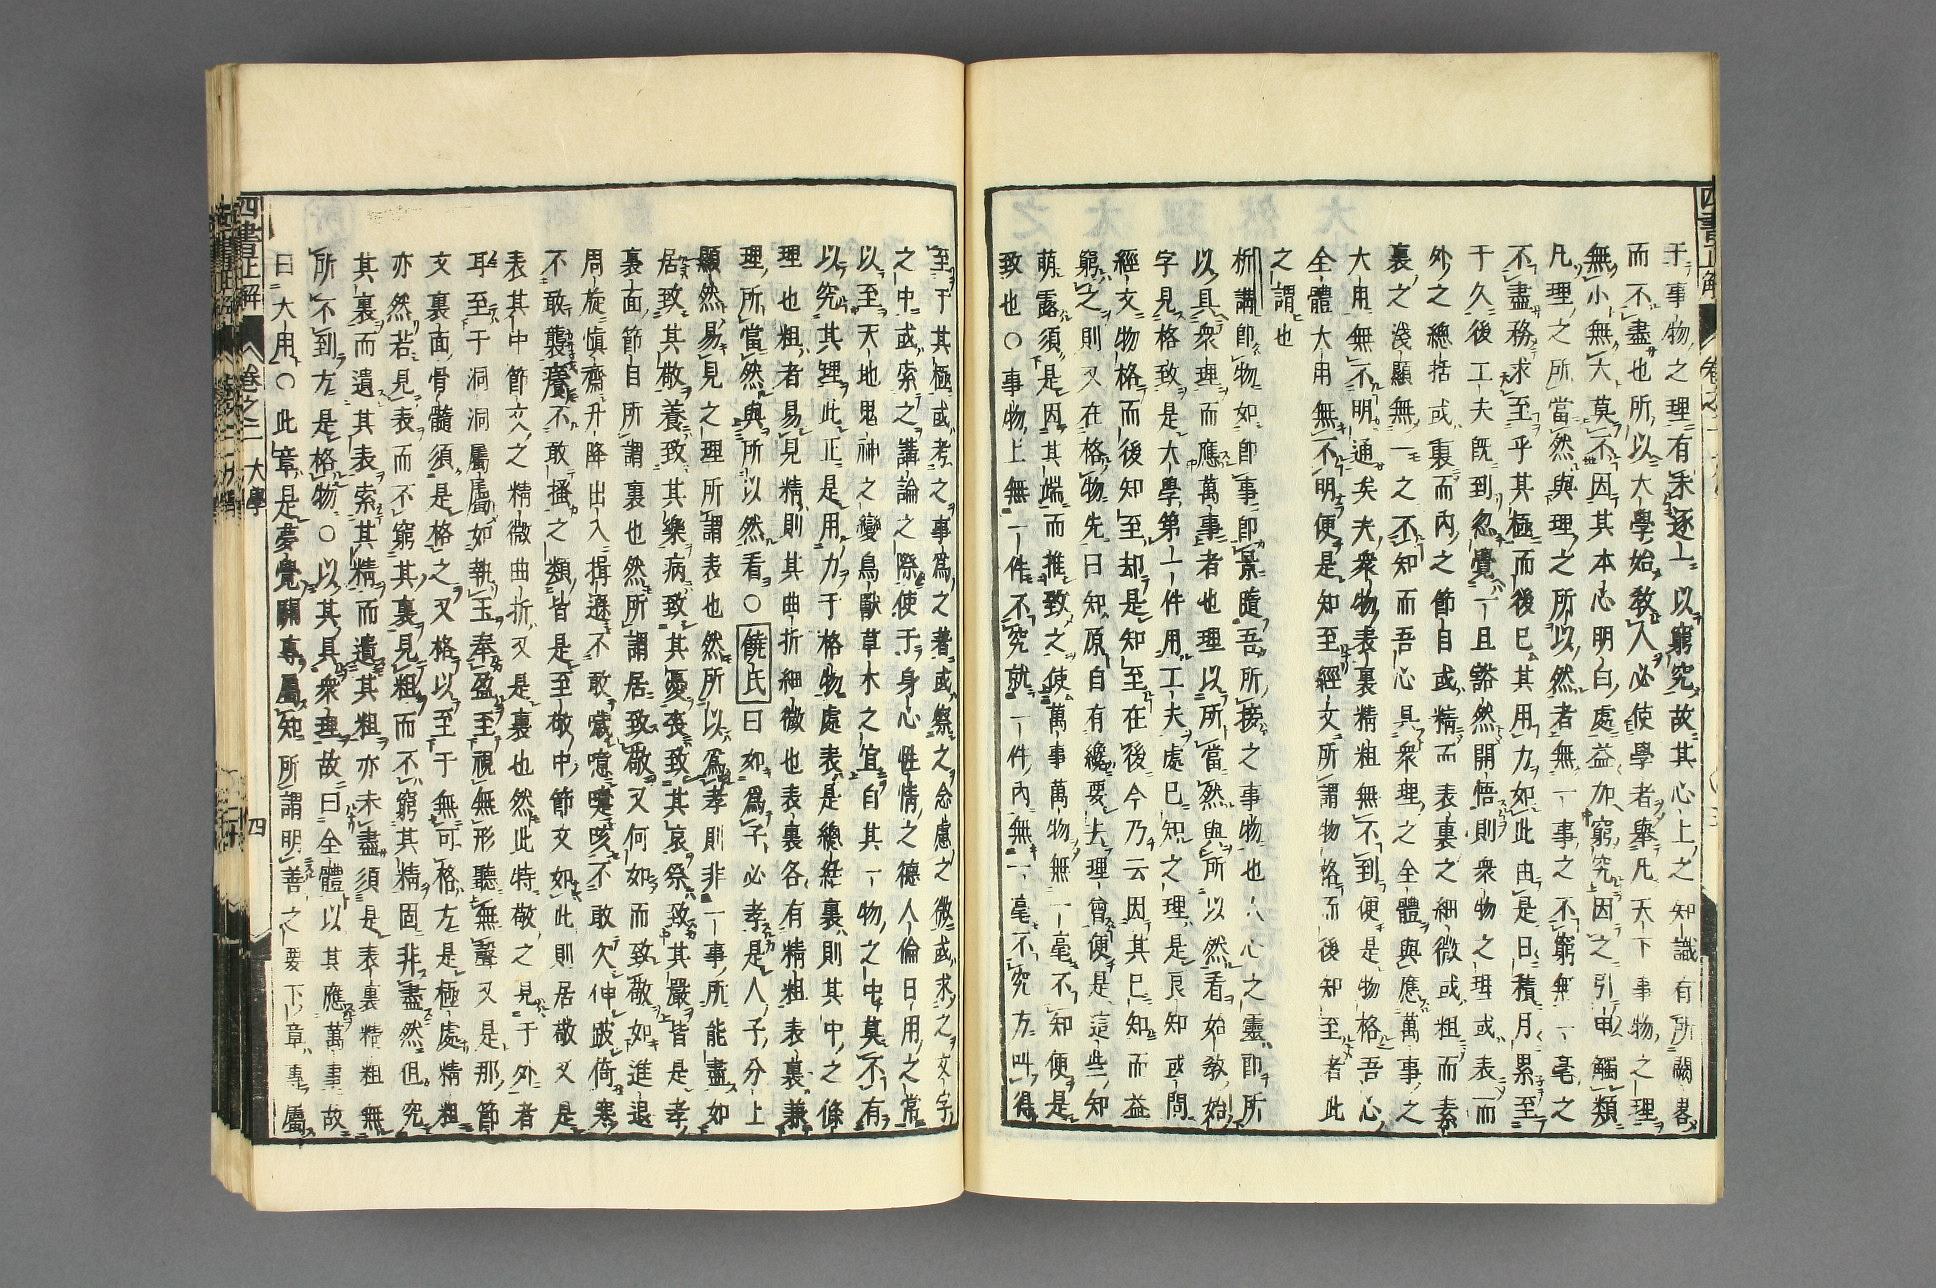 于事物之理有未逐一以窮究故其心上之知識有所闕畧
而不盡也所以大學始教人必使學者舉凡天下事物之理
無小無大莫不因其本心明白處益加窮究因之引申觸類
凡理之所當然與理之所以然者無一事之不窮無一毫之
不盡務求至乎其極而後已其用力如此由是日積月累至
于久後工夫既到忽覺一旦豁然開悟則衆物之理或表而
外之總括或裏而內之節目或精而表裏之細微或粗而素
裏之淺顯無一之不知而吾心具衆理之全體與應萬事之
大用無不明通矣夫衆物表裏精粗無不到便是物格吾心
全體大用無不明便是知至經文所謂物格而後知至者此
之謂也
析講即物如即事即景隨吾所接之事物也人心之靈即所
以具衆理而應萬事者也理以所當然與所以然看始教始
字見格致是大學第一件用工夫處已知之理是良知或問
經文物格而後知至却是知至在後今乃云因其已知而益
窮之則又在格物先曰知原自有纔要去理會便是這些知
萌露須是因其端而推致之使萬事萬物無一毫不知便是
致也○事物上無一件不究就一件內無一毫不究方叫得
至于其極或考之事爲之著或察之念慮之微或求之文字
之中或索之講論之際使于身心性情之德人倫日用之常
以至天地鬼神之變鳥獸草木之宜自其一物之中莫不有
以究其理此正是用力于格物處表是總經裏則其中之條
理也粗者易見精則其曲折細微也表裏各有精粗表裏兼
理所當然與所以然看○饒氏曰如爲子必孝是人子分上
顯然易見之理所謂表也然所以爲孝則非一事所能盡如
居致其敬養致其樂病致其憂喪致其哀祭致其嚴皆是孝
裏面節目所謂裏也然所謂居致敬又何如而致敬如進退
周旋慎齋升降出入揖遜不敢噦噫嚏咳不敢欠伸跛倚寒
不敢襲癢不敢搔之類皆是至敬中節文如此則居敬又是
表其中節文之精微曲折又是裏也然此特敬之見于外者
耳至于洞洞屬屬如執玉奉盈至視無形聽無聲又是那節
文裏面骨髓須是格之又格以至于無可格方是極處精粗
亦然若見表而不窮其裏見粗而不窮其精固非盡然但究
其裏而遺其表索其精而遺其粗亦未盡須是表裏精粗無
所不到方是格物○以其具衆理故曰全體以其應萬事故
曰大用○此章是夢覺關專屬知所謂明善之要下章專屬
四書正解
卷之二 大學
四